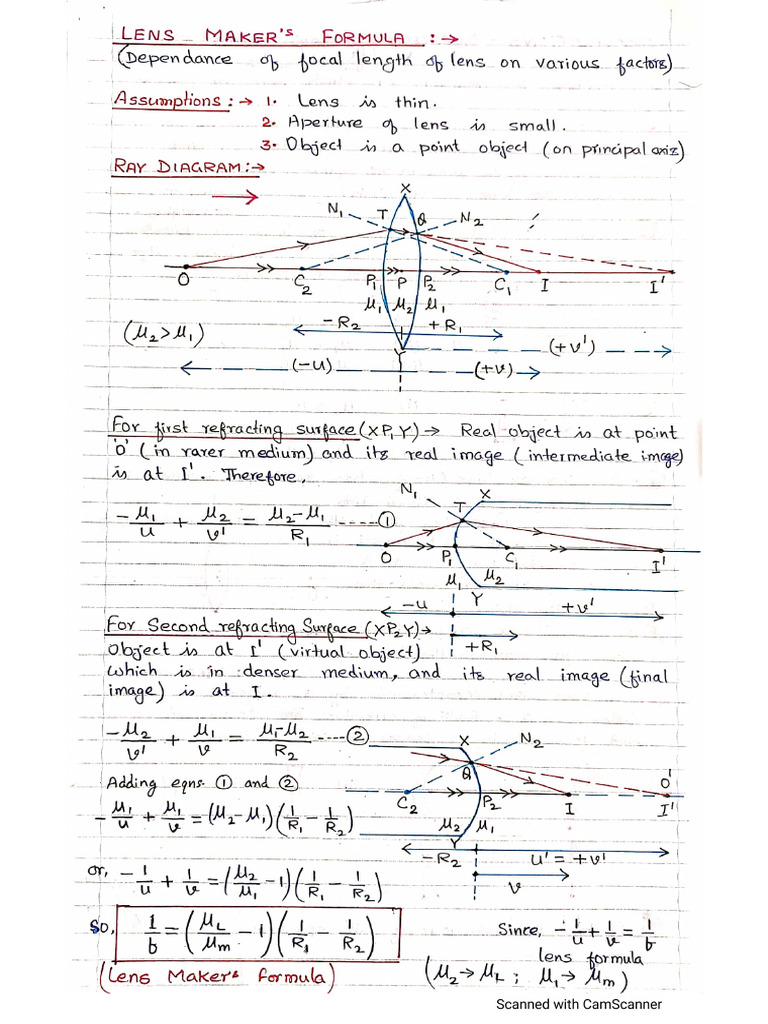 LENS MAKER'S FORMULA :→
(Dependance of focal length of lens on various factors)
Assumptions :→ 1. Lens is thin.
2. Aperture of lens is small.
3. Object is a point object (on principal axis)
RAY DIAGRAM:→
X
N₁ T Q N₂
O C₂ P₁ P P₂ C₁ I I'
μ₁ μ₂ μ₁
(μ₂>μ₁) -R₂ +R₁
Y (+v')
(-u) (+v)
For first refracting surface (XP₁Y) → Real object is at point
'O' (in rarer medium) and its real image (intermediate image)
is at I'. Therefore,
N₁ T X
-μ₁/u + μ₂/v' = μ₂-μ₁/R₁ -----①
O P₁ C₁ I'
μ₁ μ₂
-u Y +v'
+R₁
For Second refracting Surface (XP₂Y)→
Object is at I' (virtual object)
which is in denser medium, and its real image (final
image) is at I.
-μ₂/v' + μ₁/v = μ₁-μ₂/R₂ ----②
X N₂
Q O'
C₂ P₂ I I'
μ₂ μ₁
Y
-R₂ u' = +v'
v
Adding eqns. ① and ②
-μ₁/u + μ₁/v = (μ₂-μ₁)(1/R₁ - 1/R₂)
or, -1/u + 1/v = (μ₂/μ₁ -1)(1/R₁ - 1/R₂)
So, 1/f = (μL/μm - 1)(1/R₁ - 1/R₂)
Since, -1/u + 1/v = 1/f
lens formula
(Lens Maker's formula)
(μ₂→μL ; μ₁→μm)
Scanned with CamScanner